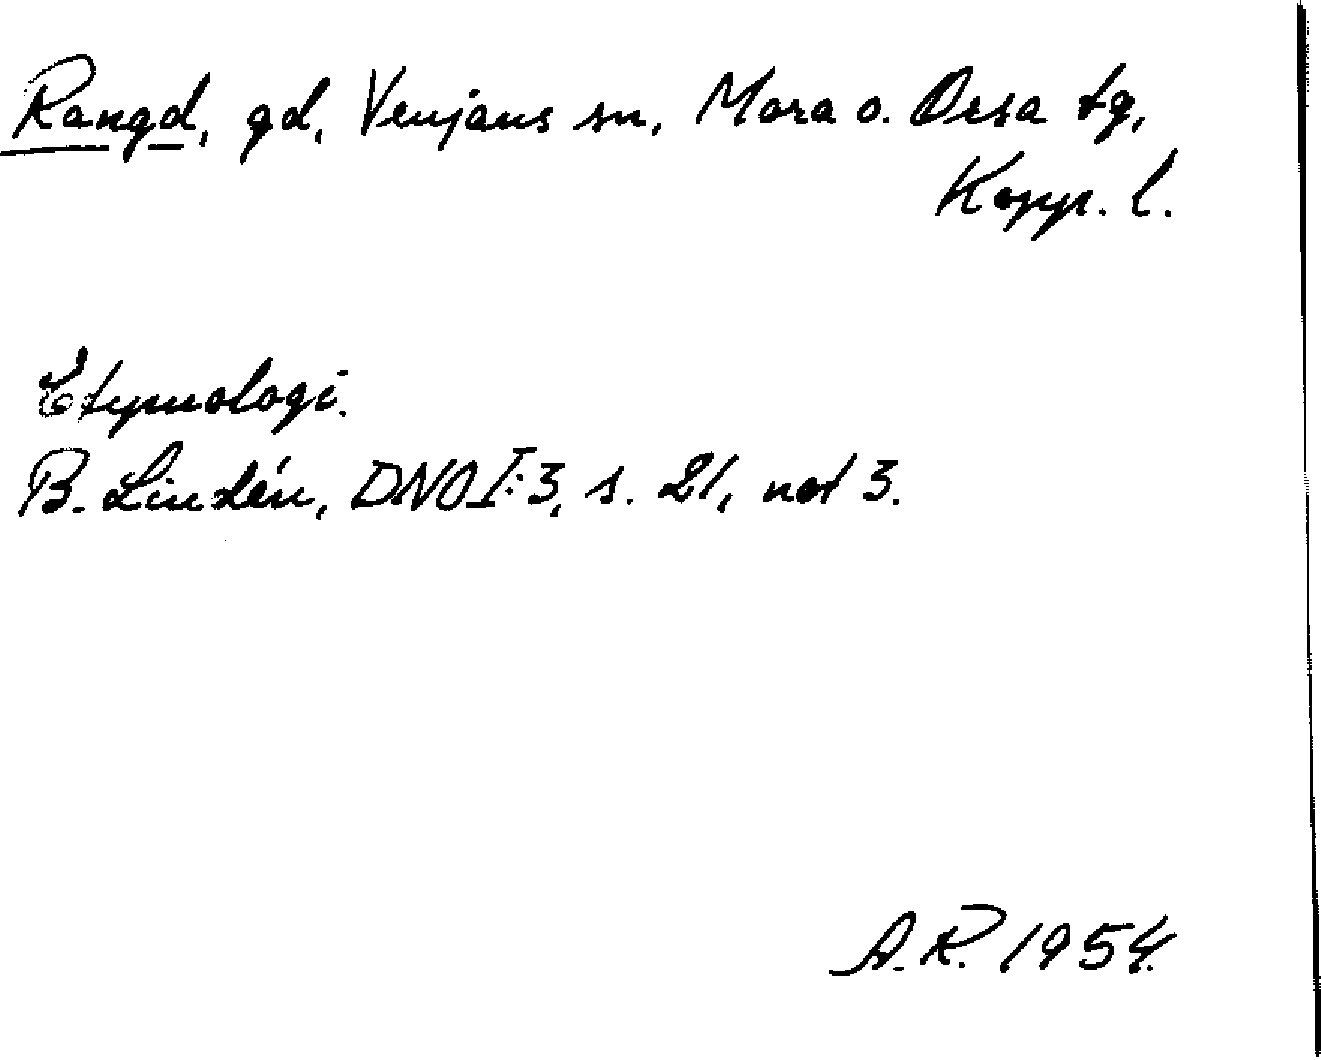 Rangd, gd, Venjans sn, Mora o. Orsa tg,
Kopp. l.
Etymologi.
B. Lindén, DNO I:3, s. 21, not 3.
A.R. 1954.